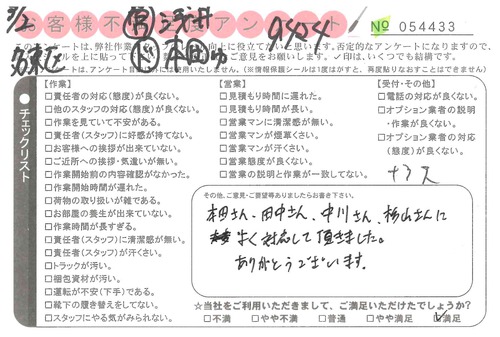 3/2
お客様不満足度アンケート
9424
№ 054433
このアンケートは、弊社作業
向上に役立てたいと思います。否定的なアンケートになりますので、
ご意見をお願いします。✓印は、いくつでも結構です。
アンケート以外には使用いたしません。(※情報保護シールは1度はがすと、再度貼りなおすことはできません)
チェックリスト
【作業】
□責任者の対応(態度)が良くない。
□他のスタッフの対応(態度)が良くない。
□作業を見ていて不安がある。
□責任者(スタッフ)に好感が持てない。
□お客様への挨拶が出来ていない。
□ご近所への挨拶・気遣いが無い。
□作業開始前の内容確認がなかった。
□作業開始時間が遅れた。
□荷物の取り扱いが雑である。
□お部屋の養生が出来ていない。
□作業時間が長すぎる。
□責任者(スタッフ)に清潔感が無い。
□責任者(スタッフ)が汗くさい。
□トラックが汚い。
□梱包資材が汚い。
□運転が不安(下手)である。
□靴下の履き替えをしてない。
□スタッフにやる気がみられない。
【営業】
□見積もり時間に遅れた。
□見積もり時間が長い。
□営業マンに清潔感が無い。
□営業マンが煙草くさい。
□営業マンが汗くさい。
□営業態度が良くない。
□営業の説明と作業が一致してない。
【受付・その他】
□電話の対応が良くない。
□オプション業者の説明
・作業が良くない。
□オプション業者の対応
(態度)が良くない。
その他、ご意見・ご要望等ありましたらお書き下さい。
本田さん、田中さん、中川さん、杉山さんに
よく対応して頂きました。
ありがとうございます。
☆当社をご利用いただきまして、ご満足いただけたでしょうか?
□不満 □やや不満 □普通 □やや満足 ☑満足